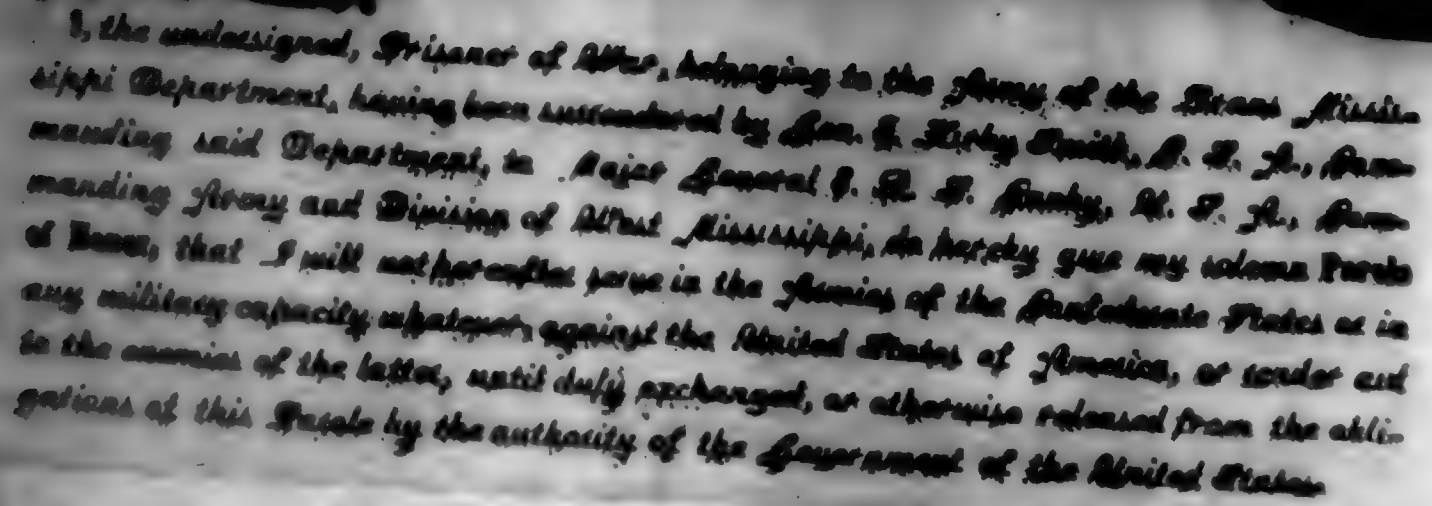 I, the undersigned, Prisoner of War, belonging to the Army of the Trans Missis-
sippi Department, having been surrendered by Gen. E. Kirby Smith, C. S. A., Com-
manding said Department, to Major General E. R. S. Canby, U. S. A., Com-
manding Army and Division of West Mississippi, do hereby give my solemn Parole
of Honor, that I will not hereafter serve in the Armies of the Confederate States or in
any military capacity whatever, against the United States of America, or render aid
to the enemies of the latter, until duly exchanged, or otherwise released from the obli-
gations of this Parole by the authority of the Government of the United States.